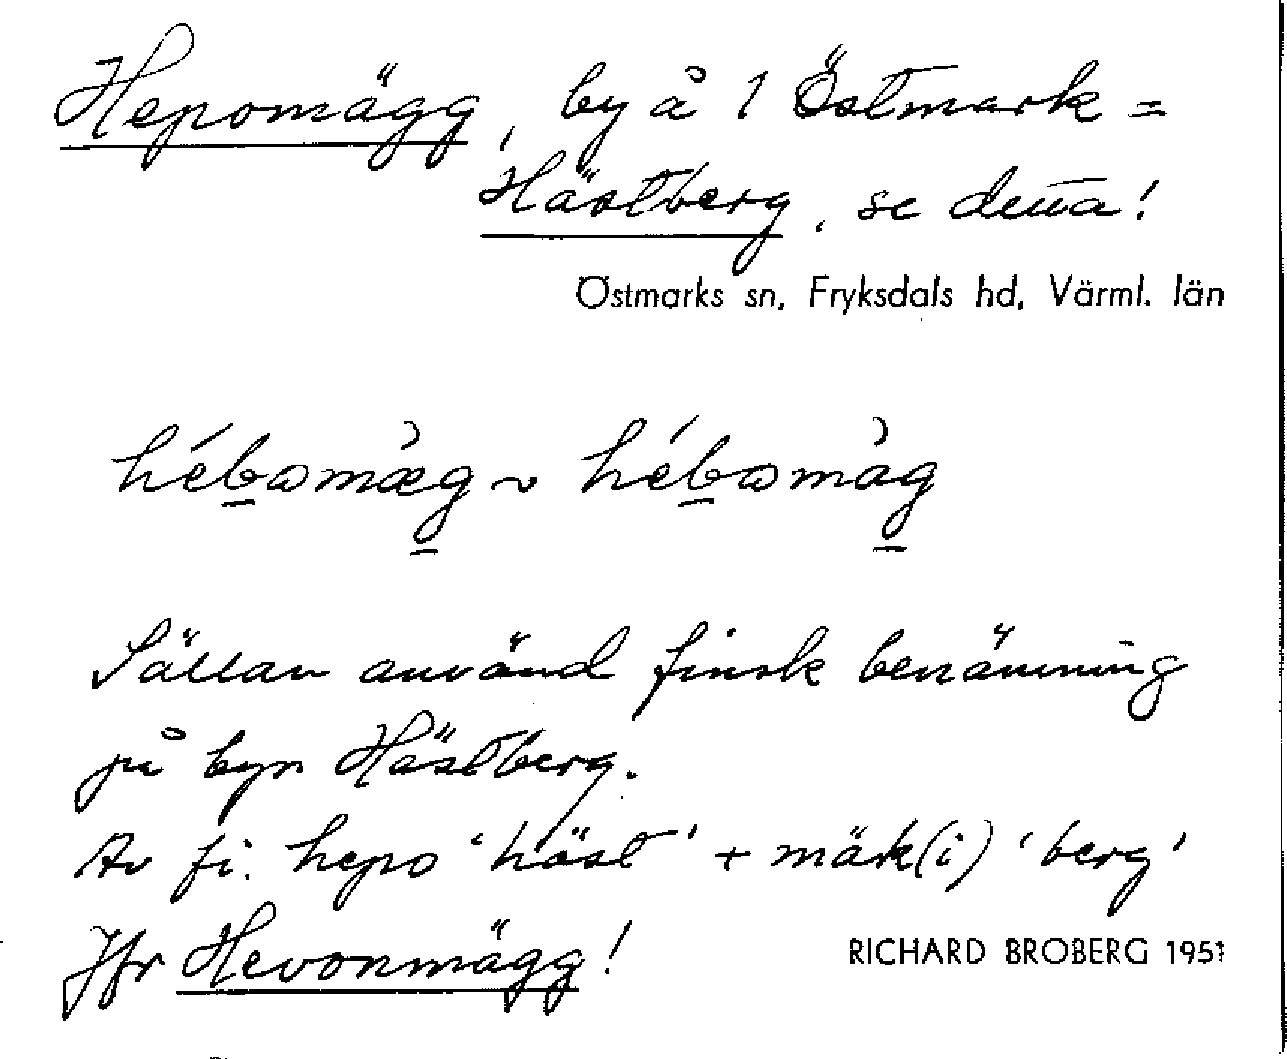 Hepomägg, by å 1 Östmark =
Hästberg, se denna!
Östmarks sn, Fryksdals hd, Värml. län
hébωmæ̀g ~ hébωmàg
Sällan använd finsk benämning
på byn Hästberg.
Av fi. hepo 'häst' + mäk(i) 'berg'
Jfr Hevonmägg!
RICHARD BROBERG 1951